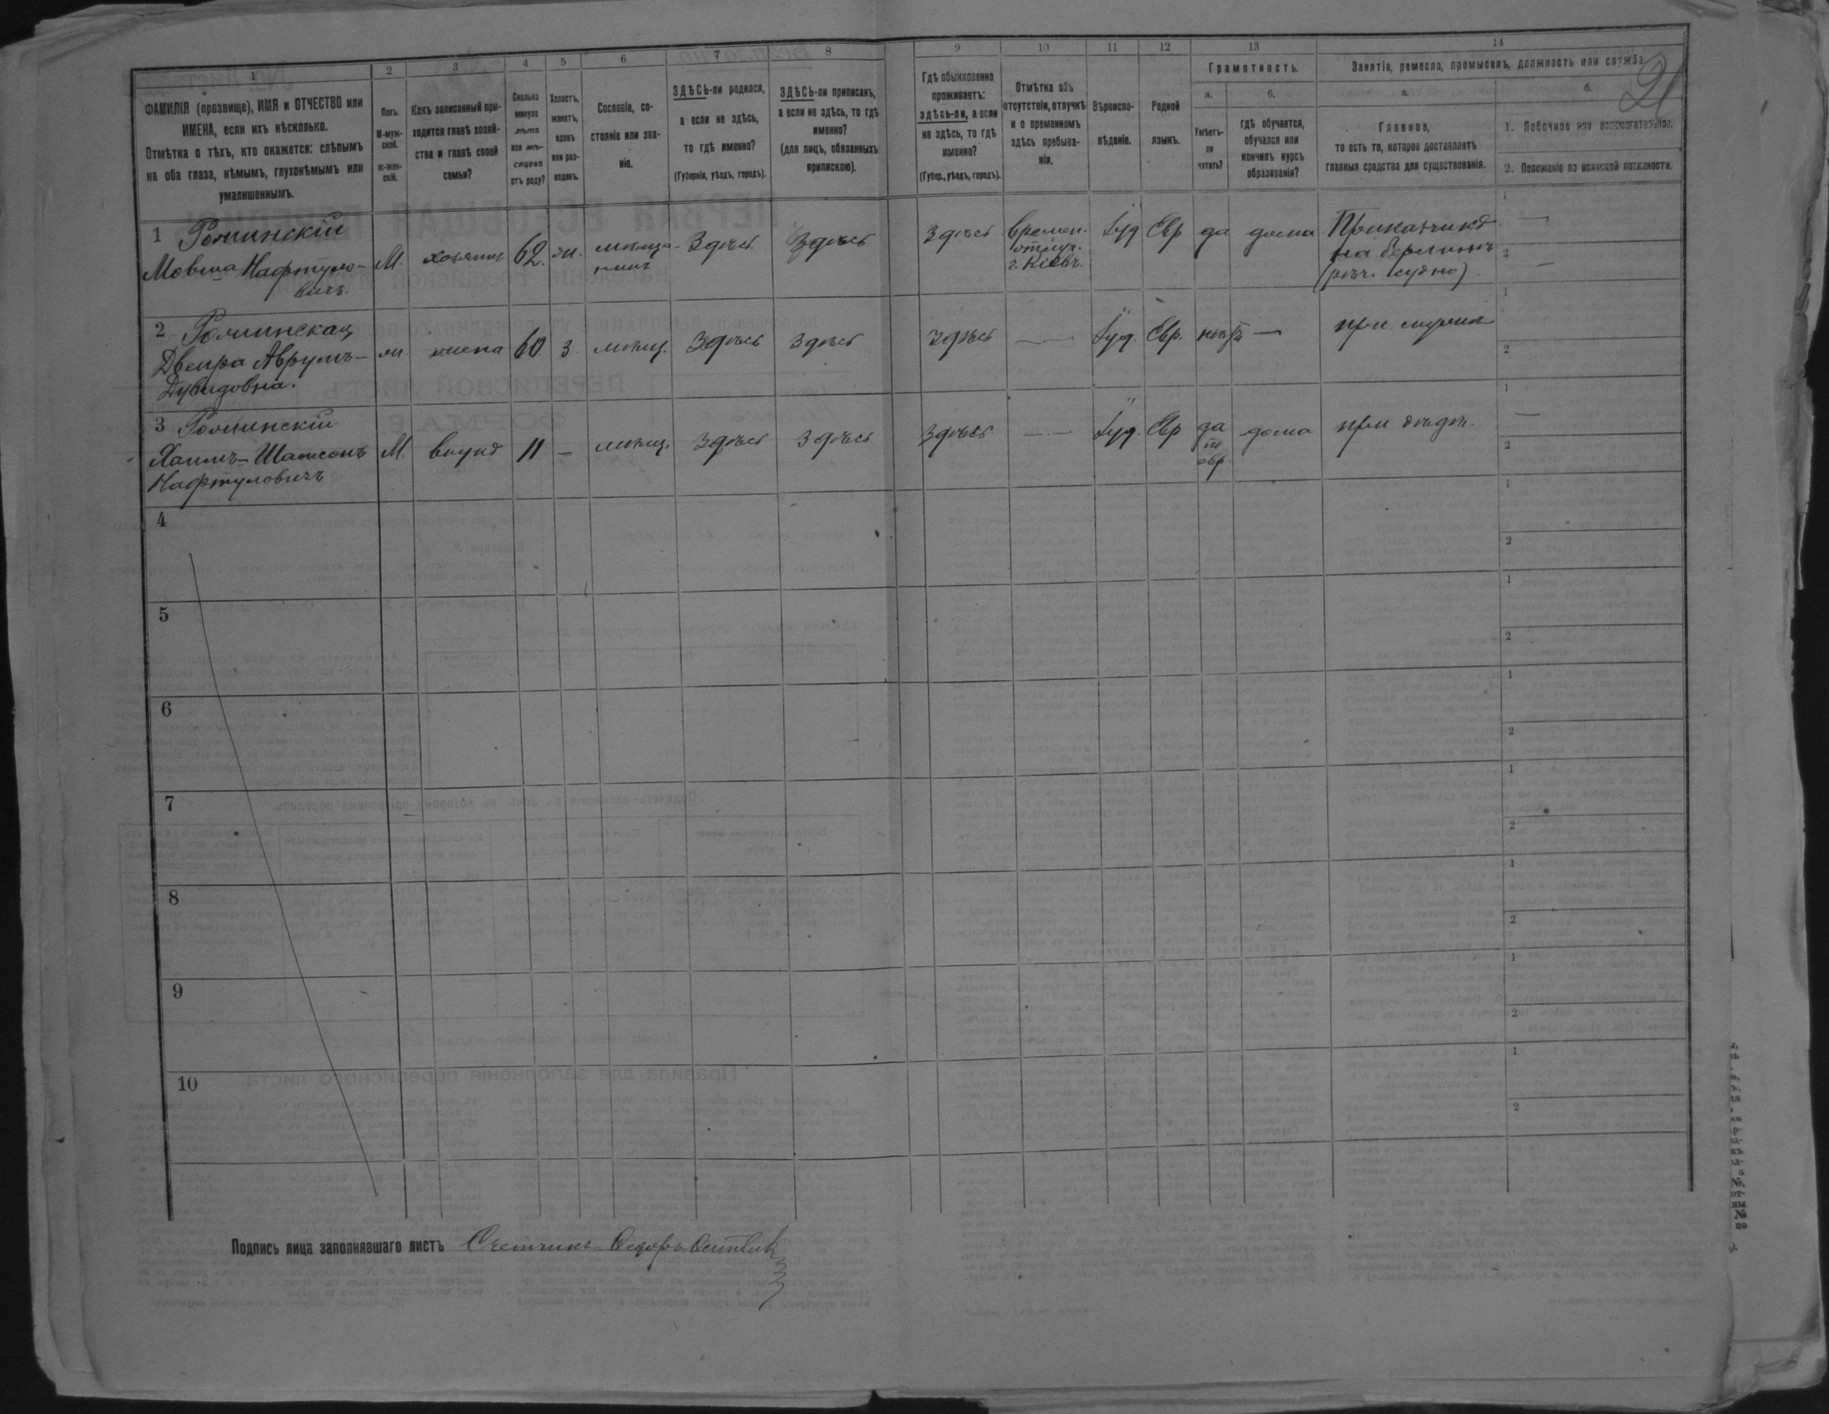 21
1
2
3
4
5
6
7
8
9
10
11
12
13
14
ФАМИЛІЯ (прозвище), ИМЯ и ОТЧЕСТВО или
ИМЕНА, если ихъ нѣсколько.
Отмѣтка о тѣхъ, кто окажется: слѣпымъ
на оба глаза, нѣмымъ, глухонѣмымъ или
умалишеннымъ.
Полъ.
М-муж-
ской.
Ж-жен-
скій.
Какъ записанный при-
ходится главѣ хозяй-
ства и главѣ своей
семьи?
Сколько
минуло
лѣтъ
или мѣ-
сяцевъ
отъ роду?
Холостъ,
женатъ,
вдовъ
или раз-
веденъ.
Сословіе, со-
стояніе или зва-
ніе.
ЗДѢСЬ-ли родился,
а если не здѣсь,
то гдѣ именно?
(Губернія, уѣздъ, городъ).
ЗДѢСЬ-ли приписанъ,
а если не здѣсь, то гдѣ
именно?
(для лицъ, обязанныхъ
припискою).
Гдѣ обыкновенно
проживаетъ:
здѣсь-ли, а если
не здѣсь, то гдѣ
именно?
(Губер., уѣздъ, городъ).
Отмѣтка объ
отсутствіи, отлучкѣ
и о временномъ
здѣсь пребыва-
ніи.
Вѣроиспо-
вѣданіе.
Родной
языкъ.
Грамотность.
а.
б.
Умѣетъ-
ли
читать?
гдѣ обучается,
обучался или
кончилъ курсъ
образованія?
Занятіе, ремесло, промыселъ, должность или служба.
а.
б.
Главное,
то есть то, которое доставляетъ
главныя средства для существованія.
1. Побочное или вспомогательное.
2. Положеніе по воинской повинности.
1 Роминскій
Мовша Нафтуло-
вичъ.
М.
хозяинъ
62.
ж.
мѣща-
нинъ
Здѣсь
Здѣсь
Здѣсь
Времен.
отлуч.
г. Кіевъ.
Іуд
Евр
да
дома
Приказчикъ
на берлинѣ
(рѣч. судно).
1 —
2 —
2 Роминская
Двейра Аврумъ-
Дувидовна.
ж.
жена
60.
З.
мѣщ.
Здѣсь
Здѣсь
Здѣсь
—
Іуд.
Евр.
нѣтъ
—
при мужѣ
1
2
3 Роминскій
Хаимъ-Шамсонъ
Нафтуловичъ
М.
внукъ
11
—
мѣщ.
Здѣсь
Здѣсь
Здѣсь
—
Іуд.
Евр
да
по
евр
дома
при дѣдѣ.
1 —
2
4
1
2
5
1
2
6
1
2
7
1
2
8
1
2
9
1
2
10
1
2
Подпись лица заполнявшаго листъ Счетчикъ Федоръ